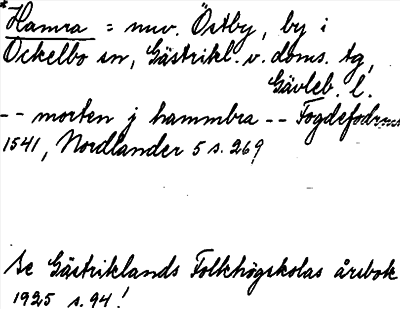 *Hamra = nuv. Östby, by i
Ockelbo sn, Gästrikl. v. doms. tg,
Gävleb. l.
-- morten j hammbra -- Fogdefodrms
1541, Nordlander 5 s. 269
Se Gästriklands Folkhögskolas årsbok
1925 s. 94!